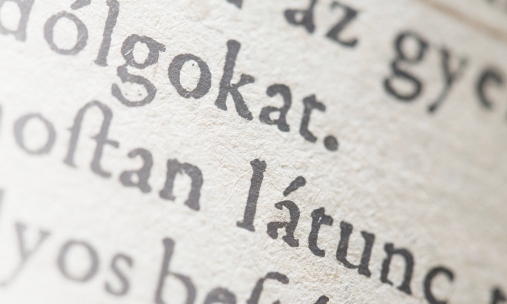 az gye
dólgokat.
oſtan látunc
yos beſ